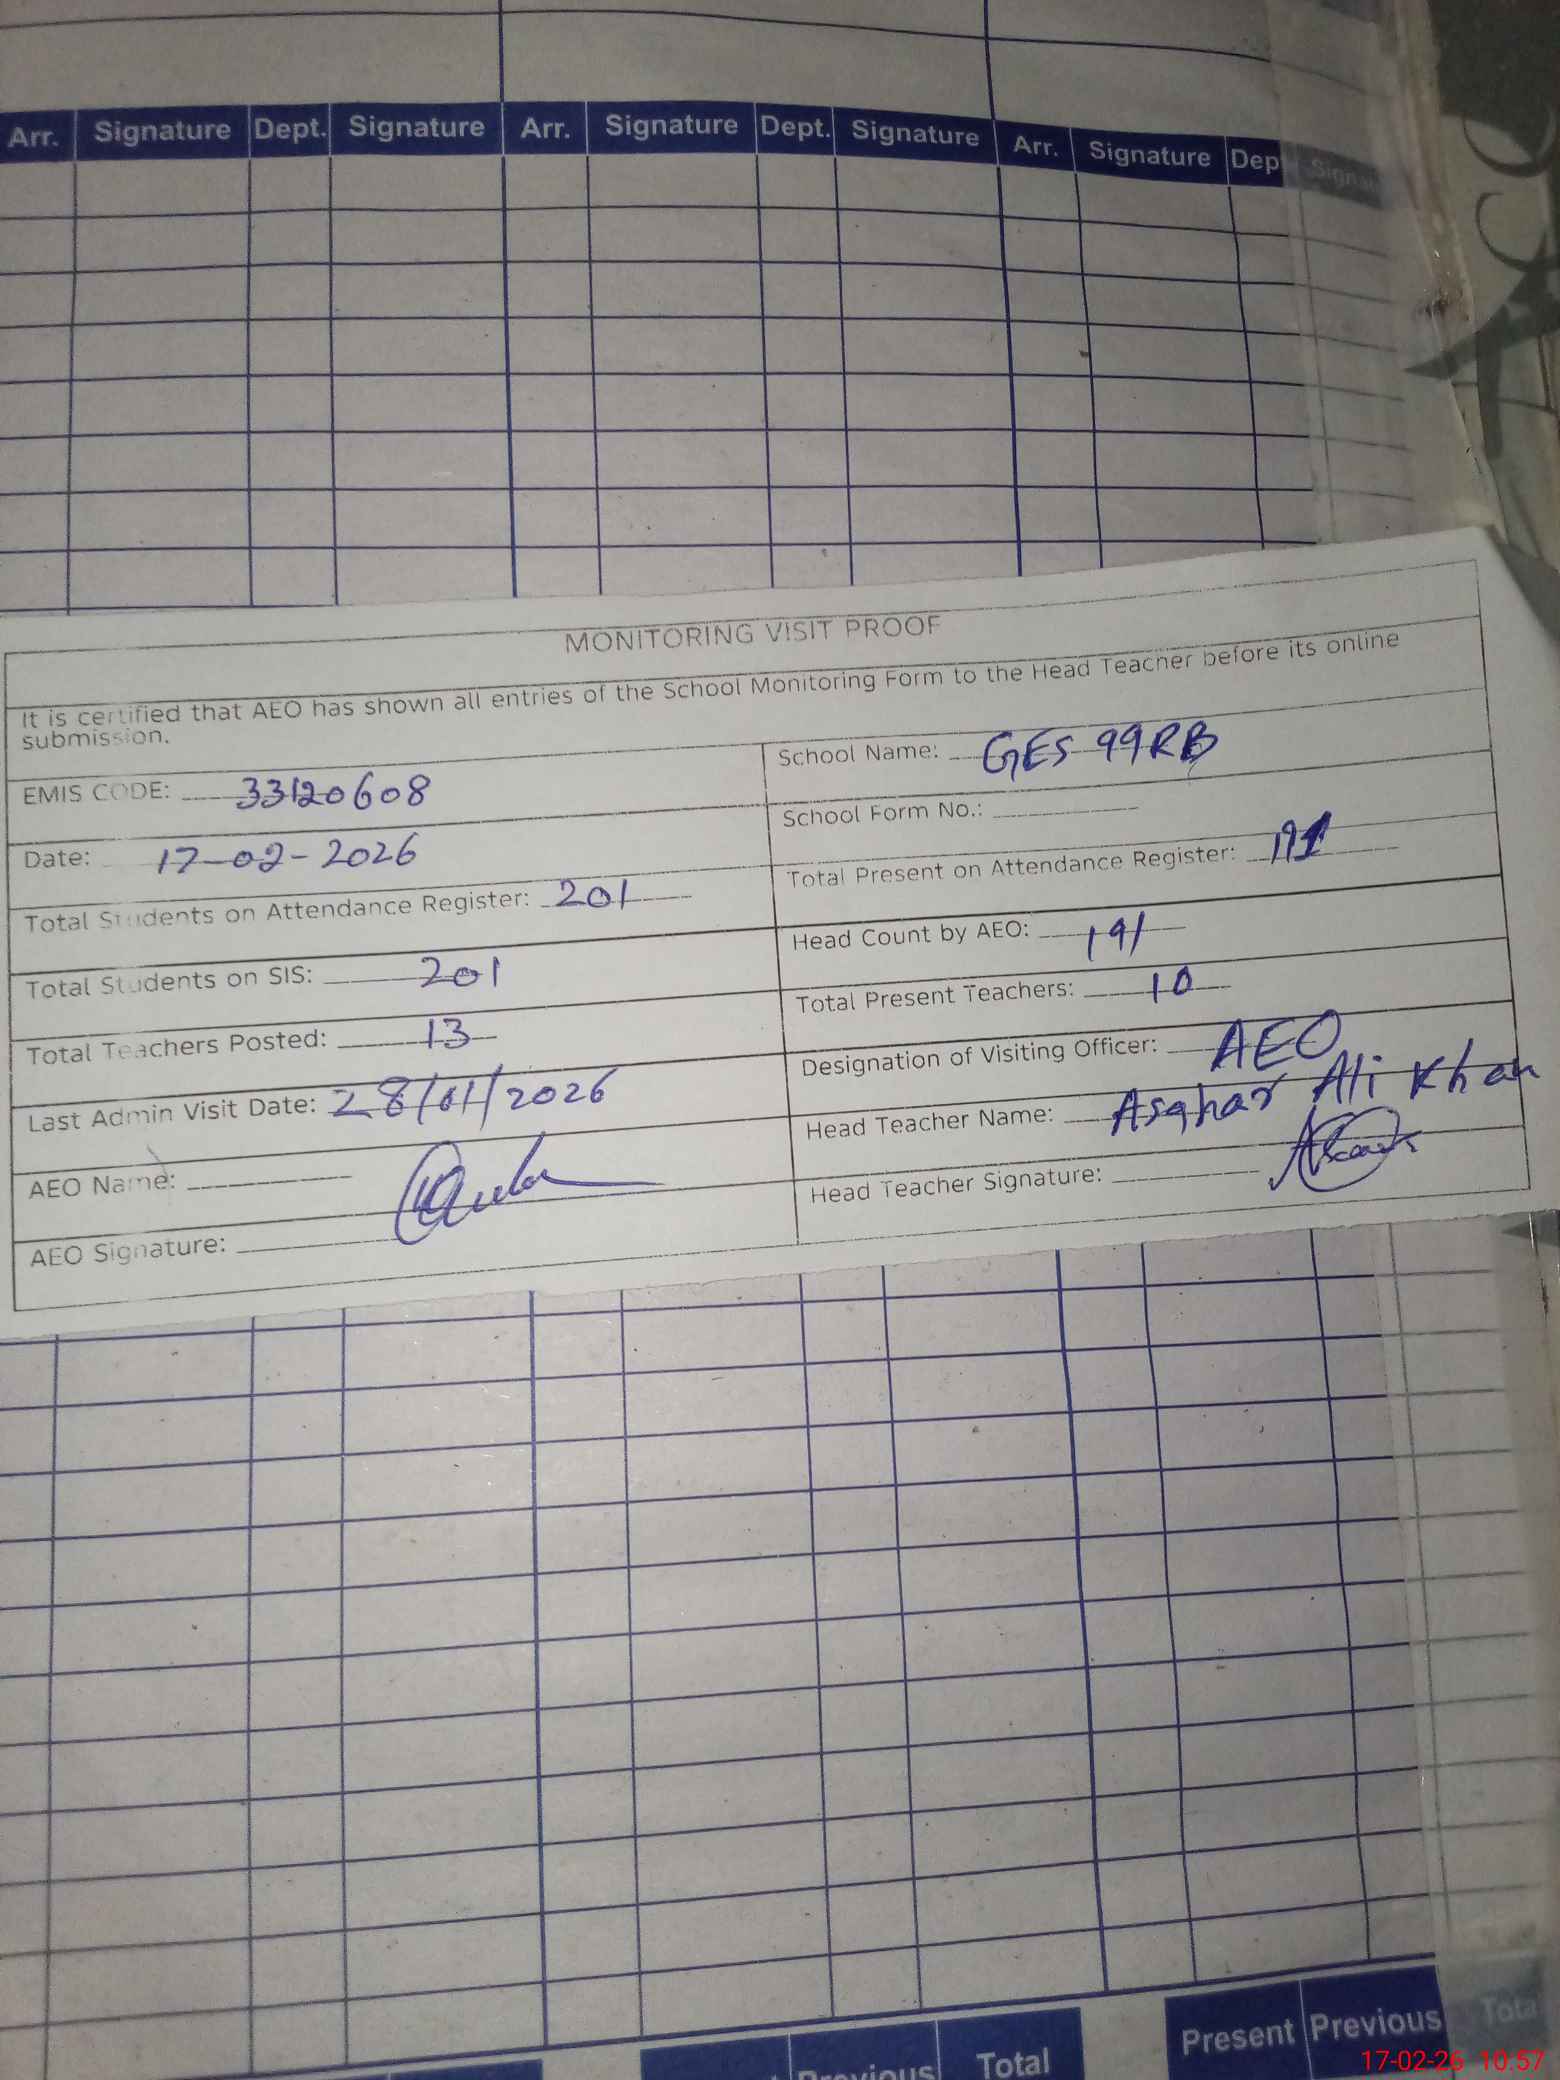 Arr. Signature Dept. Signature Arr. Signature Dept. Signature Arr. Signature Dep Signat
MONITORING VISIT PROOF
It is certified that AEO has shown all entries of the School Monitoring Form to the Head Teacher before its online
submission.
EMIS CODE: 33120608
School Name: GES 99RB
Date: 17-02-2026
School Form No.:
Total Students on Attendance Register: 201
Total Present on Attendance Register: 191
Total Students on SIS: 201
Head Count by AEO: 191
Total Teachers Posted: 13
Total Present Teachers: 10
Last Admin Visit Date: 28/01/2026
Designation of Visiting Officer: AEO
AEO Name:
Head Teacher Name: Asghar Ali Khan
AEO Signature:
Head Teacher Signature:
Previous Total Present Previous Tota
17-02-26 10:57